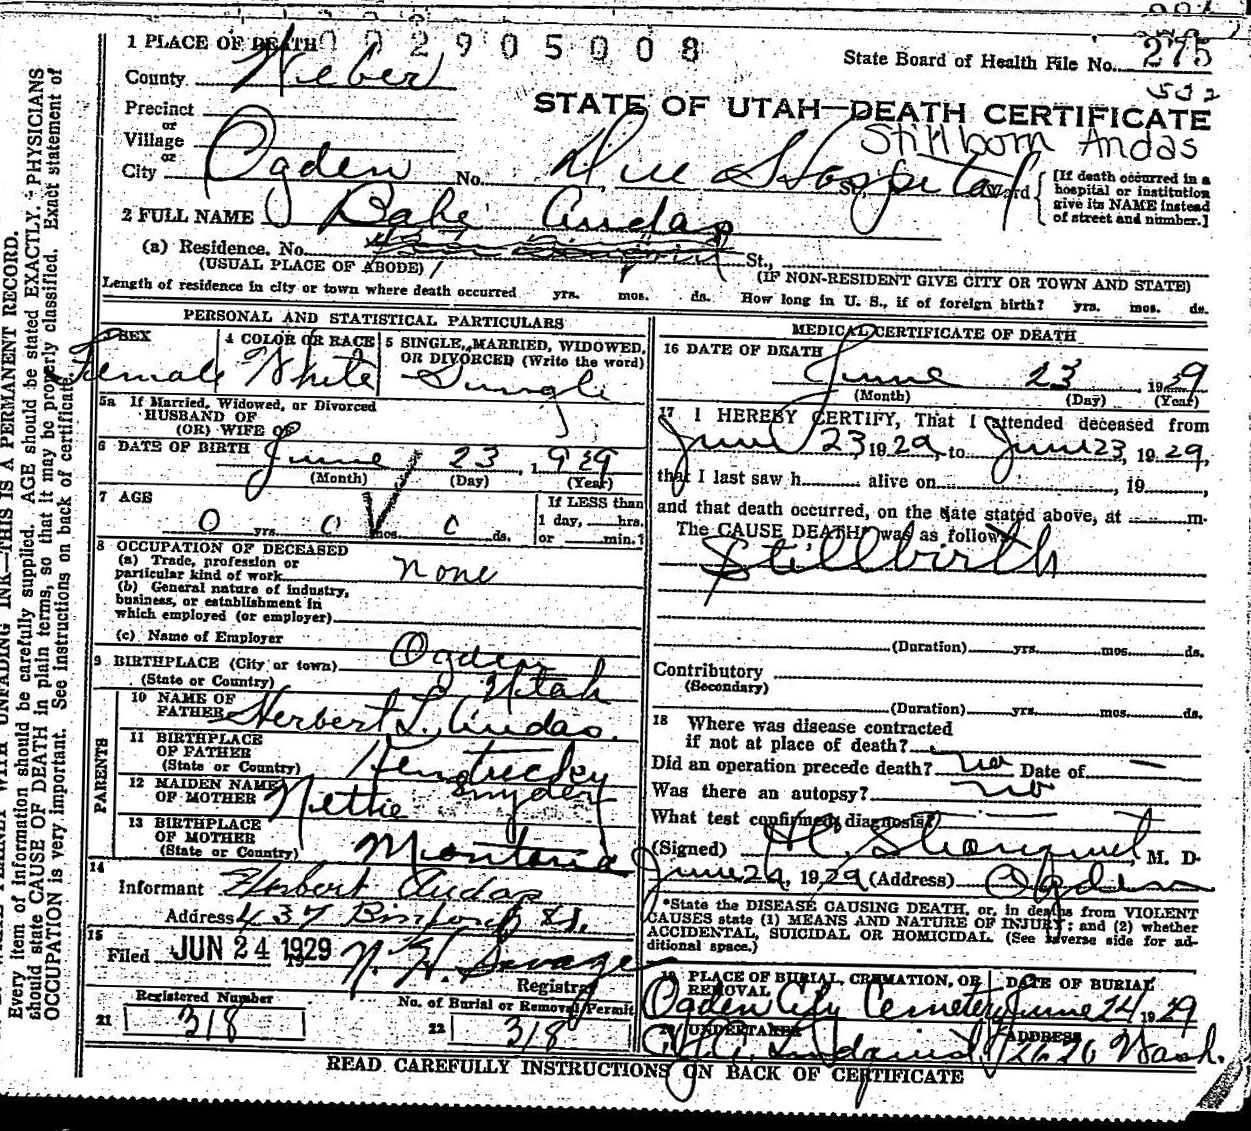 002905008
1 PLACE OF DEATH
County Weber
State Board of Health File No. 275
532
Precinct
or
Village
or
City Ogden No. Dee Hospital St., Ward
STATE OF UTAH—DEATH CERTIFICATE
Stillborn Andas
[If death occurred in a
hospital or institution
give its NAME instead
of street and number.]
2 FULL NAME Babe Andas
(a) Residence. No. St.,
(USUAL PLACE OF ABODE) (IF NON-RESIDENT GIVE CITY OR TOWN AND STATE)
Length of residence in city or town where death occurred yrs. mos. ds. How long in U. S., if of foreign birth? yrs. mos. ds.
PERSONAL AND STATISTICAL PARTICULARS
3 SEX
Female
4 COLOR OR RACE
White
5 SINGLE, MARRIED, WIDOWED,
OR DIVORCED (Write the word)
Single
5a If Married, Widowed, or Divorced
HUSBAND OF
(OR) WIFE OF
6 DATE OF BIRTH June 23, 1929
(Month) (Day) (Year)
7 AGE
0 yrs. 0 mos. 0 ds.
If LESS than
1 day, hrs.
or min.?
8 OCCUPATION OF DECEASED
(a) Trade, profession or
particular kind of work none
(b) General nature of industry,
business, or establishment in
which employed (or employer)
(c) Name of Employer
9 BIRTHPLACE (City or town) Ogden
(State or Country) Utah
PARENTS
10 NAME OF
FATHER Herbert L. Andas.
11 BIRTHPLACE
OF FATHER
(State or Country) Kentucky
12 MAIDEN NAME
OF MOTHER Nettie Snyder
13 BIRTHPLACE
OF MOTHER
(State or Country) Montana
14
Informant Herbert Andas
Address 437 Binford St.
15
Filed JUN 24 1929 N. H. Savage
Registrar
Registered Number
21 318
No. of Burial or Removal Permit
22 318
MEDICAL CERTIFICATE OF DEATH
16 DATE OF DEATH
June 23, 1929
(Month) (Day) (Year)
17 I HEREBY CERTIFY, That I attended deceased from
June 23 1929, to June 23, 1929,
that I last saw h alive on , 19 ,
and that death occurred, on the date stated above, at m.
The CAUSE DEATH* was as follows:
Stillbirth
(Duration) yrs. mos. ds.
Contributory
(Secondary)
(Duration) yrs. mos. ds.
18 Where was disease contracted
if not at place of death?
Did an operation precede death? no Date of —
Was there an autopsy? no
What test confirmed diagnosis?
(Signed) M. D.
June 24, 1929 (Address) Ogden
*State the DISEASE CAUSING DEATH, or, in deaths from VIOLENT
CAUSES state (1) MEANS AND NATURE OF INJURY; and (2) whether
ACCIDENTAL, SUICIDAL OR HOMICIDAL. (See reverse side for ad-
ditional space.)
19 PLACE OF BURIAL, CREMATION, OR
REMOVAL
Ogden City Cemetery
DATE OF BURIAL
June 24 1929
20 UNDERTAKER
Lindquist
ADDRESS
2620 Wash.
READ CAREFULLY INSTRUCTIONS ON BACK OF CERTIFICATE
INK—THIS IS A PERMANENT RECORD.
Every item of information should be carefully supplied. AGE should be stated EXACTLY. PHYSICIANS
should state CAUSE OF DEATH in plain terms, so that it may be properly classified. Exact statement of
OCCUPATION is very important. See instructions on back of certificate.